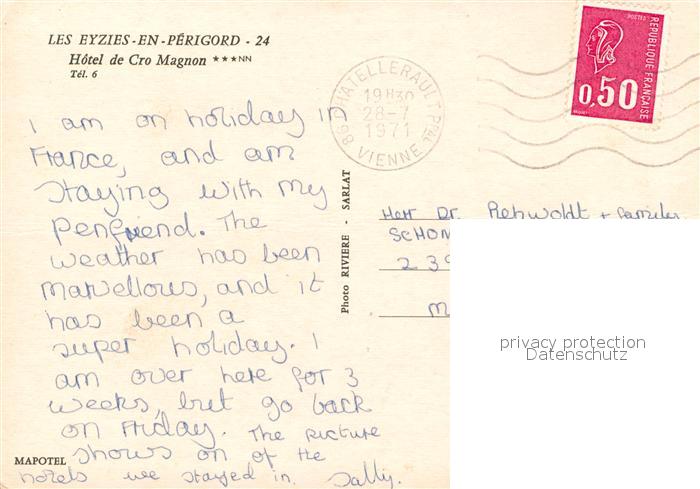 LES EYZIES-EN-PÉRIGORD - 24
Hôtel de Cro Magnon ★★★NN
Tél. 6
I am on holiday in
France, and am
staying with my
penfriend. The
weather has been
marvellous, and it
has been a
super holiday. I
am over here for 3
weeks, but go back
on Friday. The picture
shows on of the
hotels we stayed in. Sally.
MAPOTEL
Photo RIVIERE - SARLAT
86 CHATELLERAULT Ppal
19H30
28-7
1971
VIENNE
POSTES
REPUBLIQUE FRANÇAISE
0,50
Herr Dr. Rehwoldt + family
SCHON
239
M
privacy protection
Datenschutz